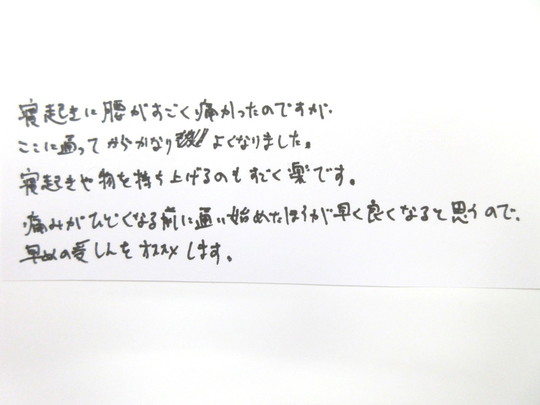 寝起きに腰がすごく痛かったのですが、
ここに通ってからかなりよくなりました。
寝起きや物を持ち上げるのもすごく楽です。
痛みがひどくなる前に通い始めたほうが早く良くなると思うので、
早めの受しんをオススメします。